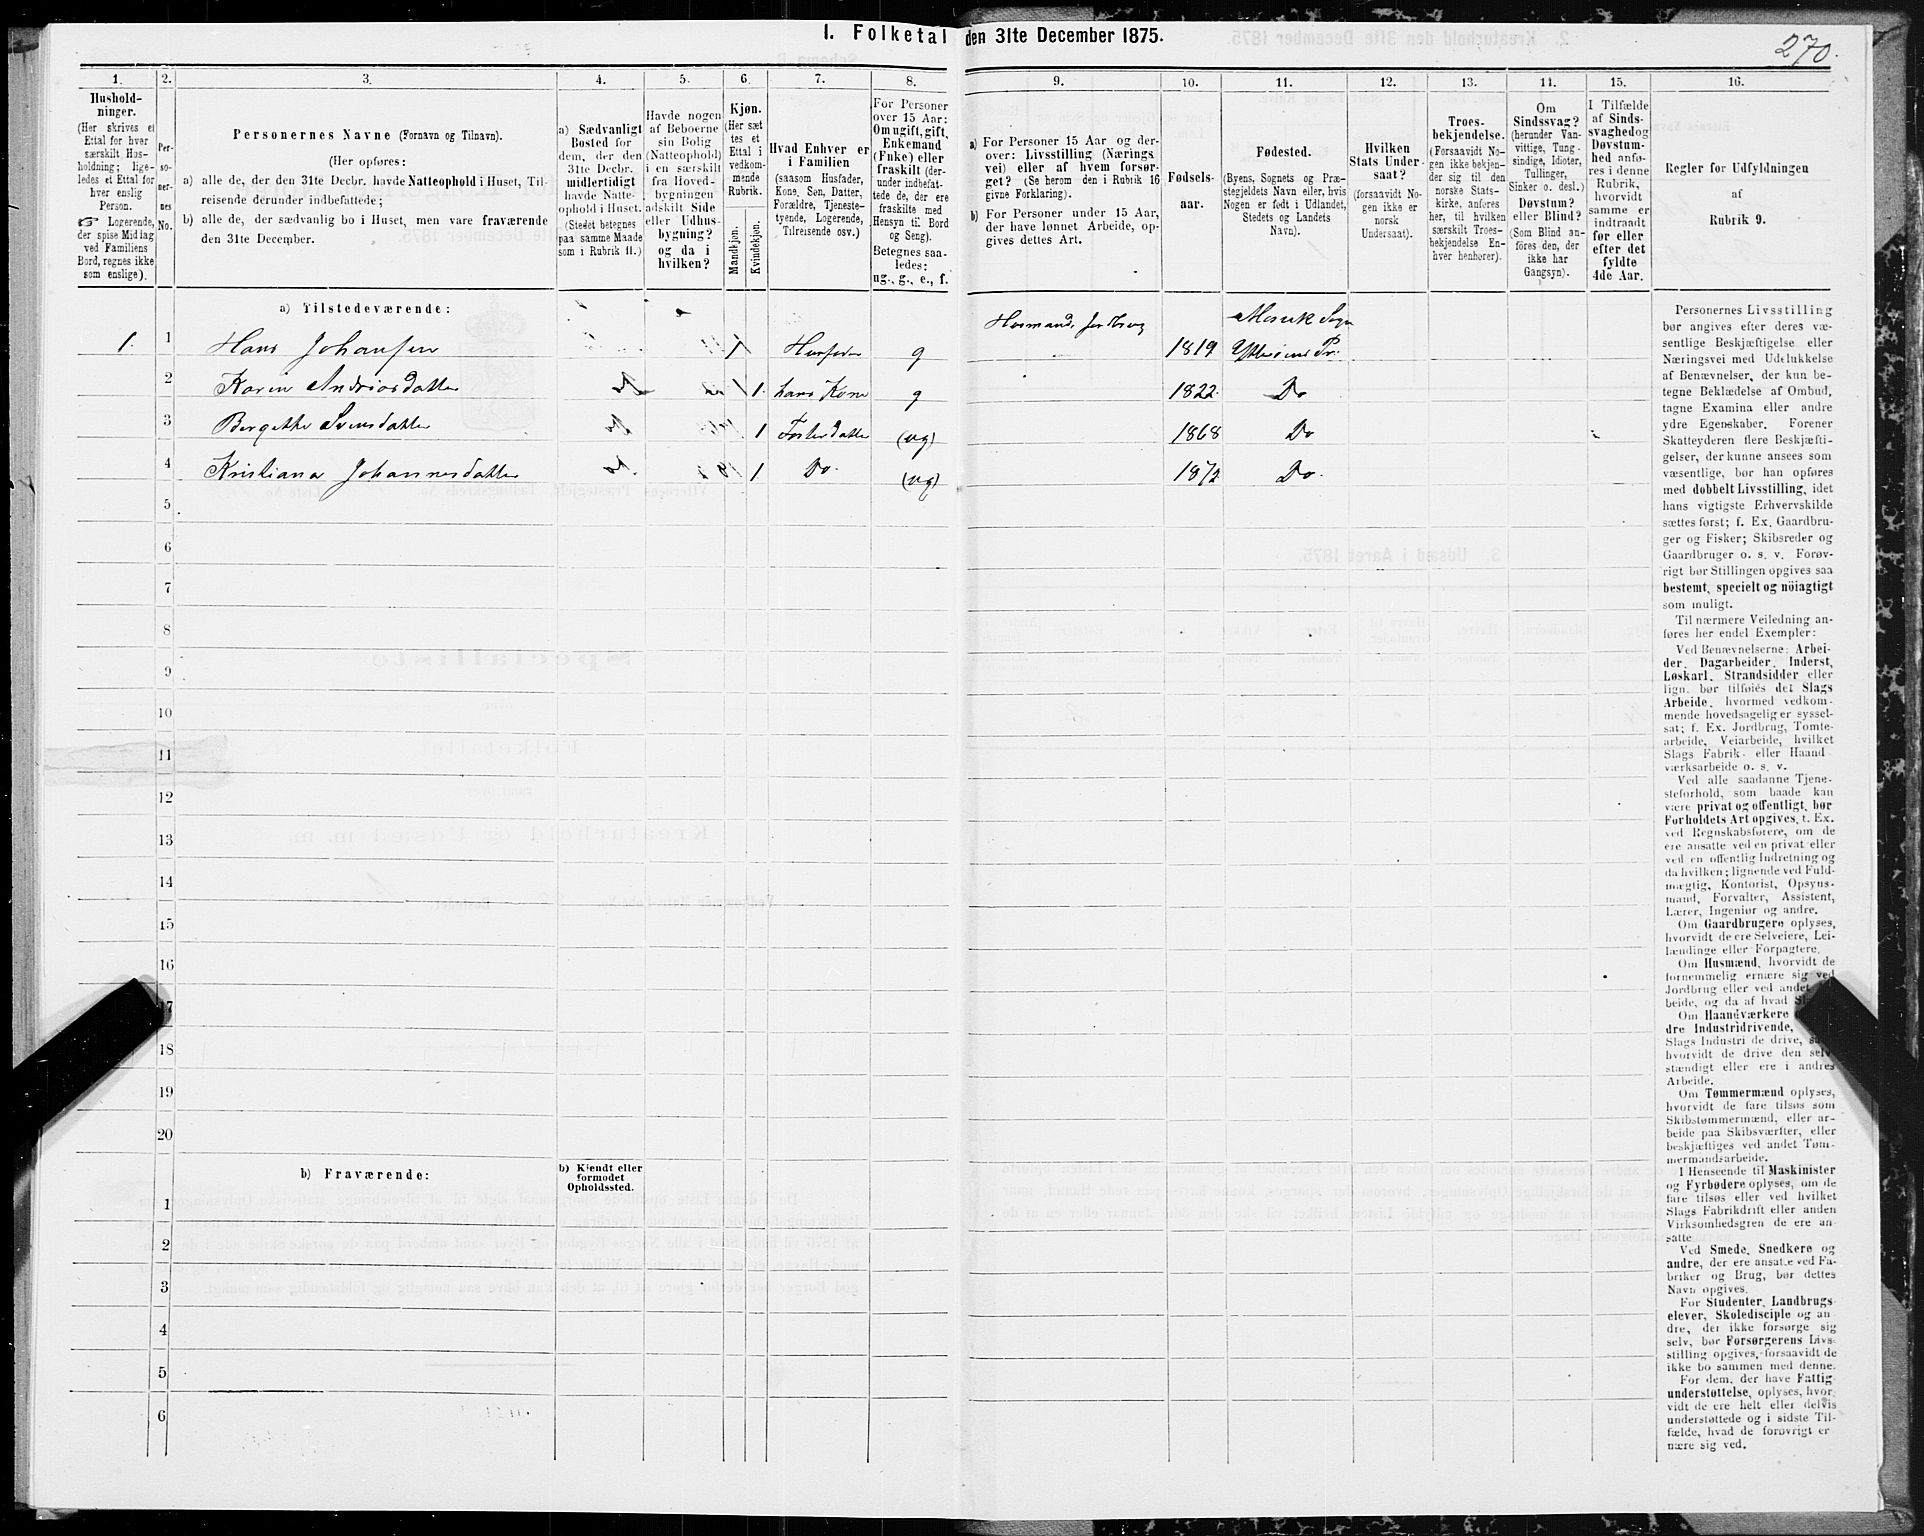 I. Folketal den 31te December 1875.
270.
1. 2. 3. 4. 5. 6. 7. 8. 9. 10. 11. 12. 13. 14. 15. 16.
Hushold-
ninger.
(Her skrives et
Ettal for hver
særskilt Hus-
holdning; lige-
ledes et Ettal for
hver enslig
Person.
☞ Logerende,
der spise Middag
ved Familiens
Bord, regnes ikke
som enslige).
Per-
so-
ner-
nes
No.
Personernes Navne (Fornavn og Tilnavn).
(Her opføres:
a) alle de, der den 31te Decbr. havde Natteophold i Huset, Til-
reisende derunder indbefattede;
b) alle de, der sædvanlig bo i Huset, men vare fraværende
den 31te December.
a) Sædvanligt
Bosted for
dem, der den
31te Decbr.
midlertidigt
havde Natte-
ophold i Huset.
(Stedet betegnes
paa samme Maade
som i Rubrik 11.)
Havde nogen
af Beboerne
sin Bolig
(Natteophold)
i en særskilt
fra Hoved-
bygningen
adskilt Side
eller Udhus-
bygning?
og da i
hvilken?
Kjøn.
(Her sæt
tes et
Ettal i
vedkom-
mende
Rubrik.
Mandkjøn.
Kvindekjøn.
Hvad Enhver er
i Familien
(saasom Husfader,
Kone, Søn, Datter,
Forældre, Tjeneste-
tyende, Logerende,
Tilreisende osv.)
For Personer
over 15 Aar:
Om ugift, gift,
Enkemand
(Enke) eller
fraskilt (der-
under indbefat-
tede de, der ere
fraskilte med
Hensyn til Bord
og Seng).
Betegnes saa-
ledes:
ug., g., e., f.
a) For Personer 15 Aar og der-
over: Livsstilling (Nærings
vei) eller af hvem forsør-
get? (Se herom den i Rubrik 16
givne Forklaring).
b) For Personer under 15 Aar,
der have lønnet Arbeide, op-
gives dettes Art.
Fødsels-
aar.
Fødested.
(Byens, Sognets og Præ-
stegjeldets Navn eller, hvis
Nogen er født i Udlandet,
Stedets og Landets
Navn).
Hvilken
Stats Under-
saat?
(forsaavidt No-
gen ikke er
norsk
Undersaat).
Troes-
bekjendelse.
(Forsaavidt No-
gen ikke bekjen-
der sig til den
norske Stats-
kirke, anføres
her, til hvilken
særskilt Troes-
bekjendelse En-
hver henhører).
Om
Sindssvag?
(herunder Van-
vittige, Tung-
sindige, Idioter,
Tullinger,
Sinker o. desl.)
Døvstum?
eller Blind?
(Som Blind an-
føres den, der
ikke har
Gangsyn).
I Tilfælde
af Sinds-
svaghed og
Døvstum-
hed anfø-
res i denne
Rubrik,
hvorvidt
samme er
indtraadt
før eller
efter det
fyldte
4de Aar.
Regler for Udfyldningen
af
Rubrik 9.
a) Tilstedeværende:
1. 1 Hans Johansen 1 Husfader g Husmand, Jordbrug 1819
2 Karin Andriasdatter 1. hans Kone g 1822 Do
3 Bergethe Svensdatter 1 Fosterdatter (ug) 1868 Do
4 Kristiana Johannesdatter 1 Do. (ug) 1872 Do.
5
6
7
8
9
10
11
12
13
14
15
16
17
18
19
20
b) Fraværende:
b) Kjendt eller
formodet
Opholdssted.
1
2
3
4
5
6
Personernes Livsstilling
bør angives efter deres væ-
sentlige Beskjæftigelse eller
Næringsvei med Udelukkelse
af Benævnelser, der kun be-
tegne Beklædelse af Ombud,
tagne Examina eller andre
ydre Egenskaber. Forener
Skatteyderen flere Beskjæfti-
gelser, der kunne ansees som
væsentlige, bør han opføres
med dobbelt Livsstilling, idet
hans vigtigste Erhvervskilde
sættes først; f. Ex. Gaardbru-
ger og Fisker; Skibsreder og
Gaardbruger o. s. v. Forøv-
rigt bør Stillingen opgives saa
bestemt, specielt og nöiagtigt
som muligt.
Til nærmere Veiledning an-
føres her endel Exempler:
Ved Benævnelserne: Arbei-
der, Dagarbeider, Inderst,
Løskarl, Strandsidder eller
lign. bør tilføies det Slags
Arbeide, hvormed vedkom-
mende hovedsagelig er syssel-
sat; f. Ex. Jordbrug, Tomte-
arbeide, Veiarbeide, hvilket
Slags Fabrik- eller Haand-
værksarbeide o. s. v.
Ved alle saadanne Tjene-
steforhold, som baade kan
være privat og offentligt, bør
Forholdets Art opgives, t. Ex.
ved Regnskabsførere, om de
ere ansatte ved en privat eller
ved en offentlig Indretning og
da hvilken; lignende ved Fuld-
mægtig, Kontorist, Opsyns-
mand, Forvalter, Assistent,
Lærer, Ingeniør og andre.
Om Gaardbrugere oplyses,
hvorvidt de ere Selveiere, Lei-
lændinge eller Forpagtere.
Om Husmænd, hvorvidt de
fornemmelig ernære sig ved
Jordbrug eller ved andet
beide, og da af hvad
Om Haandværkere
dre Industridrivende,
Slags Industri de drive,
hvorvidt de drive den selv-
stændigt eller ere i andres
Arbeide.
Om Tømmermænd oplyses,
hvorvidt de fare tilsøs som
Skibstømmermænd, eller ar-
beide paa Skibsværfter, eller
beskjæftiges ved andet Tøm-
mermandsarbeide.
I Henseende til Maskinister
og Fyrbødere oplyses, om de
fare tilsøs eller ved hvilket
Slags Fabrikdrift eller anden
Virksomhedsgren de ere an-
satte
Ved Smede, Snedkere og
andre, der ere ansatte ved Fa-
briker og Brug, bør dettes
Navn opgives.
For Studenter, Landbrugs-
elever, Skoledisciple og an-
dre, der ikke forsørge sig
selv, bør Forsørgerens Livs-
stilling opgives, forsaavidt de
ikke bo sammen med denne.
For dem, der have Fattig-
understøttelse, oplyses, hvor-
vidt de ere helt eller delvis
understøttede og i sidste Til-
fælde, hvad de forøvrigt er
nære sig ved.